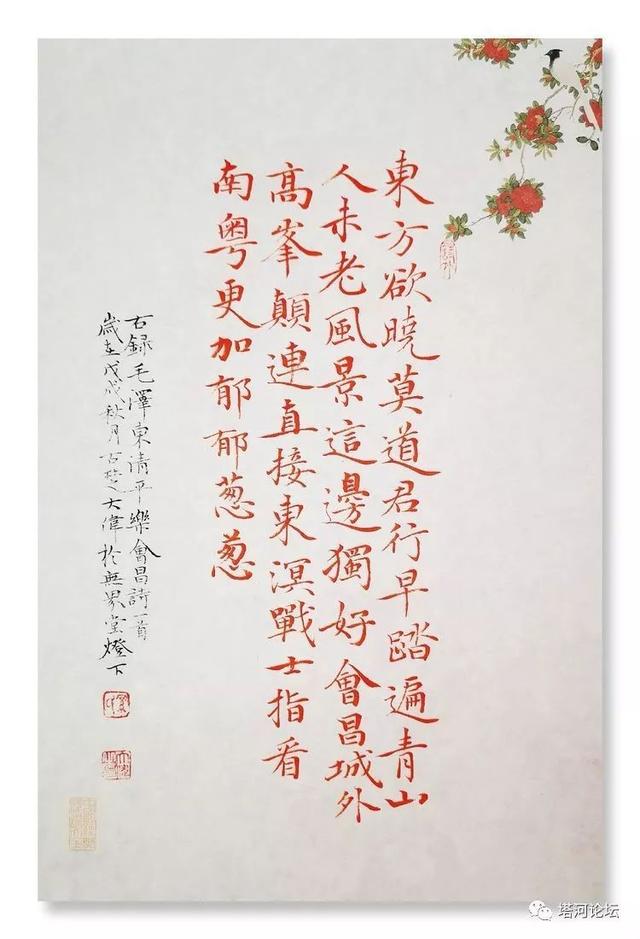 東方欲曉莫道君行早踏遍青山
人未老風景這邊獨好會昌城外
高峯顛連直接東溟戰士指看
南粤更加郁郁葱葱
右録毛澤東清平樂會昌詩一首
歲在戊戌秋月古楚大偉於無界堂燈下
塔河论坛